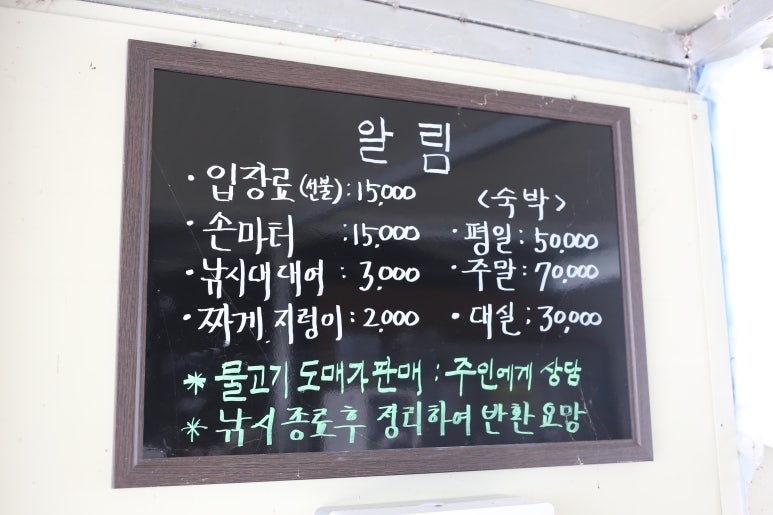 알림
· 입장료(선불) : 15,000
· 손마터 : 15,000
· 낚시대 대여 : 3,000
· 짜게, 지렁이 : 2,000
<숙박>
· 평일 : 50,000
· 주말 : 70,000
· 대실 : 30,000
* 물고기 도매가 판매 : 주인에게 상담
* 낚시 종료후 정리하여 반환 요망